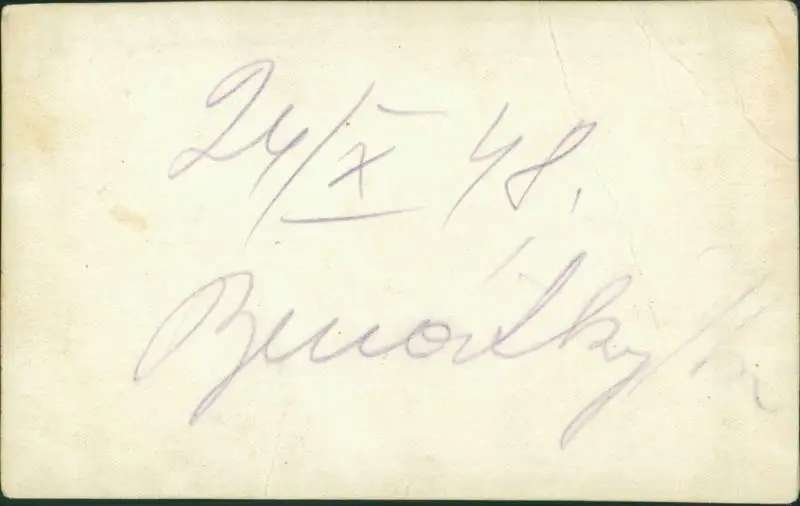 24/X 48.
Benátky